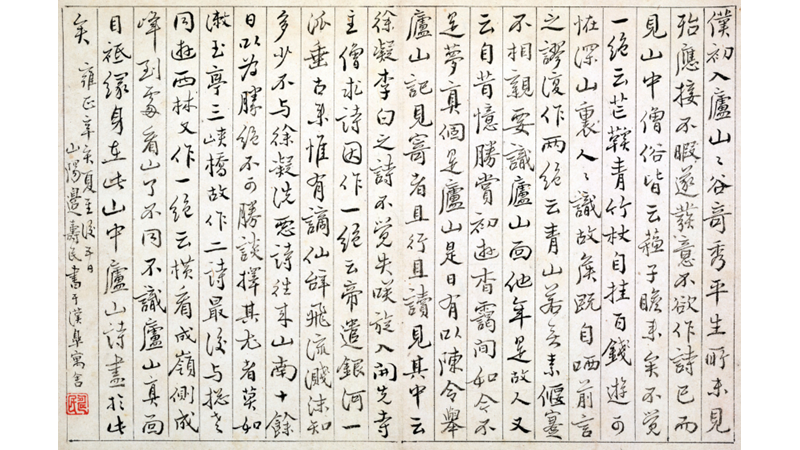 僕初入廬山〻谷奇秀平生所未見
殆應接不暇遂發意不欲作詩已而
見山中僧俗皆云蘇子瞻來矣不覺
一絕云芒鞵青竹杖自挂百錢遊可
怪深山裏人〻識故矦既自哂前言
之謬復作兩絕云青山若無素偃蹇
不相親要識廬山面他年是故人又
云自昔憶勝賞初遊杳靄間如今不
是夢真個是廬山是日有以陳令舉
廬山記見寄者且行且讀見其中云
徐凝李白之詩不覺失咲旋入開先寺
主僧求詩因作一絕云帝遣銀河一
派垂古來惟有謫仙辭飛流濺沫知
多少不與徐凝洗惡詩往來山南十餘
日以為勝絕不可勝談擇其尤者莫如
漱玉亭三峽橋故作二詩最後與揔老
同遊西林又作一絕云橫看成嶺側成
峰到處看山了不同不識廬山真面
目祗緣身在此山中廬山詩盡於此
矣 雍正辛亥夏至後五日
山陽邊壽民書于漢皋寓舍